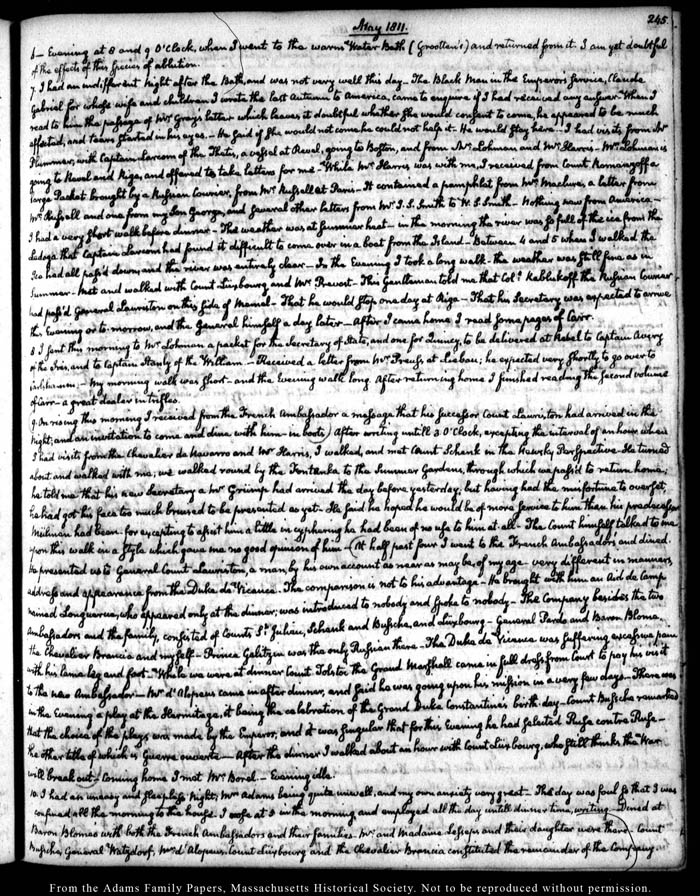 May 1811.
245.
6— Evening at 8 and 9 O'Clock, when I went to the warm Water Bath (Grootten's) and returned from it. I am yet doubtful
of the effects of this species of ablution.
7. I had an indifferent Night after the Bath, and was not very well this day— The Black Man in the Emperor's service, Claude
Gabriel for whose wife and children I wrote the last Autumn to America, came to enquire if I had received any answer. When I
read to him the passage of Mr Gray's letter which leaves it doubtful whether she would consent to come, he appeared to be much
affected, and tears started in his eyes.— He said if she would not come he could not help it. He would stay here.— I had visits from Mr
Plummer, with Captain Larcom of the Thetis, a vessel at Revel, going to Boston, and from Mr Lohman and Mr Harris.— Mr Lohman is
going to Revel and Riga, and offered to take letters for me— While Mr Harris was with me, I received from Count Romanzoff a
large Packet brought by a Russian Courier, from Mr Russell at Paris— It contained a pamphlet from Mr Maclure, a letter from
Mr Russell and one from my Son George, and several other letters from Mr J. S. Smith to W. S. Smith. Nothing new from America—
I had a very short walk before dinner— The weather was at Summer heat— in the morning the river was so full of the ice from the
Ladoga that Captain Larcom had found it difficult to come over in a boat from the Island— Between 4 and 5 when I walked the
Ice had all pass'd down, and the river was entirely clear— In the Evening I took a long walk— the weather was still fine as in
Summer— Met and walked with Count Luxbourg and Mr Prevost. This Gentleman told me that Coll. Kablukoff the Russian Courier
had pass'd General Lauriston on this side of Memel— That he would stop one day at Riga— That his Secretary was expected to arrive
this Evening or to-morrow, and the General himself a day later— After I came home I read some pages of Carr.
8 I sent this morning to Mr Lohman a packet for the Secretary of State, and one for Quincy, to be delivered at Rebel to Captain Avery
of the Iris, and to Captain Stanly of the William.— Received a letter from Mr Preuss, at Liebau; he expected very shortly to go over to
My morning walk was short— and the Evening walk long. After returning home I finished reading the second volume
of Carr— a great dealer in trifles.
9. On rising this morning I received from the French Ambassador a message that his successor Count Lauriston had arrived in the
night; and an invitation to come and dine with him— in boots) After writing untill 3 O'Clock, excepting the interval of an hour when
I had visits from the Chevalier de Navarro and Mr Harris, I walked, and met Count Schenk in the Newsky Perspective. He turned
about and walked with me; we walked round by the Fontanka to the Summer Gardens, through which we pass'd to return home;
he told me that his new Secretary a Mr had arrived the day before yesterday; but having had the misfortune to overset,
he had got his face too much bruised to be presented as yet. He said he hoped he would be of more service to him than his predecessor
had been— for excepting to assist him a little in cyphering he had been of no use to him at all. The Count himself talked to me
upon this walk in a style which gave me no good opinion of him— (At half past four I went to the French Ambassador's and dined.
He presented us to General Count Lauriston, a man, by his own account as near as may be, of my age— very different in manners,
address and appearance from the Duke de Vicence. The comparison is not to his advantage— He brought with him an Aid de Camp
named Longuerue, who appeared only at the dinner; was introduced to nobody and spoke to nobody— The Company besides the two
Ambassadors and the family, consisted of Counts St. Julien, Schenk and Bussche, and Luxbourg— General Pardo and Baron Blome.
the Chevalier Brancia and myself— Prince Galitzin was the only Russian there— The Duke de Vicence was suffering excessive pain
with his lame leg and foot.— While we were at dinner Count Tolstoi the Grand Marshall came in full dress from Court to pay his visit
to the new Ambassador— Mr d'Alopeus came in after dinner, and said he was going upon his mission in a very few days— There was
in the Evening a play at the Hermitage, it being the celebration of the Grand Duke Constantine's birth-day— Count Bussche remarked
that the choice of the plays was made by the Emperor, and it was singular that for this Evening he had selected Ruse contre Ruse—
the other title of which is Guerre ouverte— After the dinner I walked about an hour with Count Luxbourg, who still thinks the War
will break out.) Coming home I met Mr Borel— Evening idle.
10. I had an uneasy and sleepless Night; Mrs Adams being quite unwell, and my own anxiety very great— The day was foul so that I was
confined all the morning to the house. I rose at 5 in the morning and employed all the day untill dinner time, writing— Dined at
Baron Blome's with both the French Ambassadors and their families— Mr and Madame Lesseps and their daughter were there— Count
Bussche, General Watzdorf, Mr d'Alopeus, Count Luxbourg and the Chevalier Brancia constituted the remainder of the Company
From the Adams Family Papers, Massachusetts Historical Society. Not to be reproduced without permission.